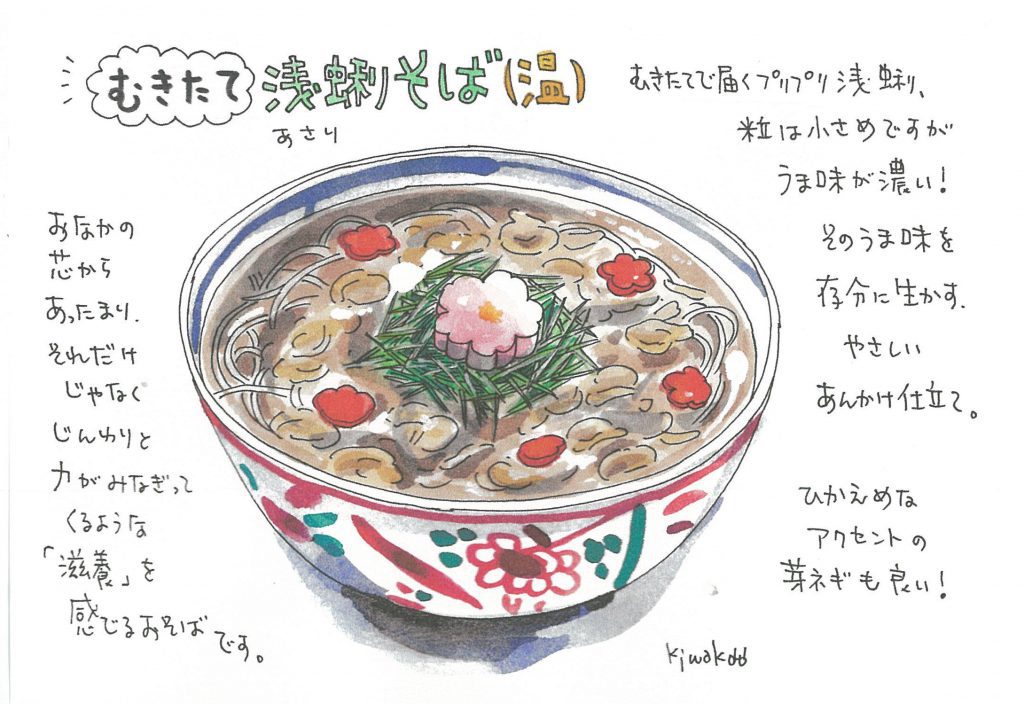 むきたて 浅蜊そば(温)
あさり
むきたてで届くプリプリ浅蜊、
粒は小さめですが
うま味が濃い!
そのうま味を
存分に生かす、
やさしい
あんかけ仕立て。
ひかえめな
アクセントの
芽ネギも良い!
おなかの
芯から
あったまり、
それだけ
じゃなく
じんわりと
力がみなぎって
くるような
「滋養」を
感じるおそばです。